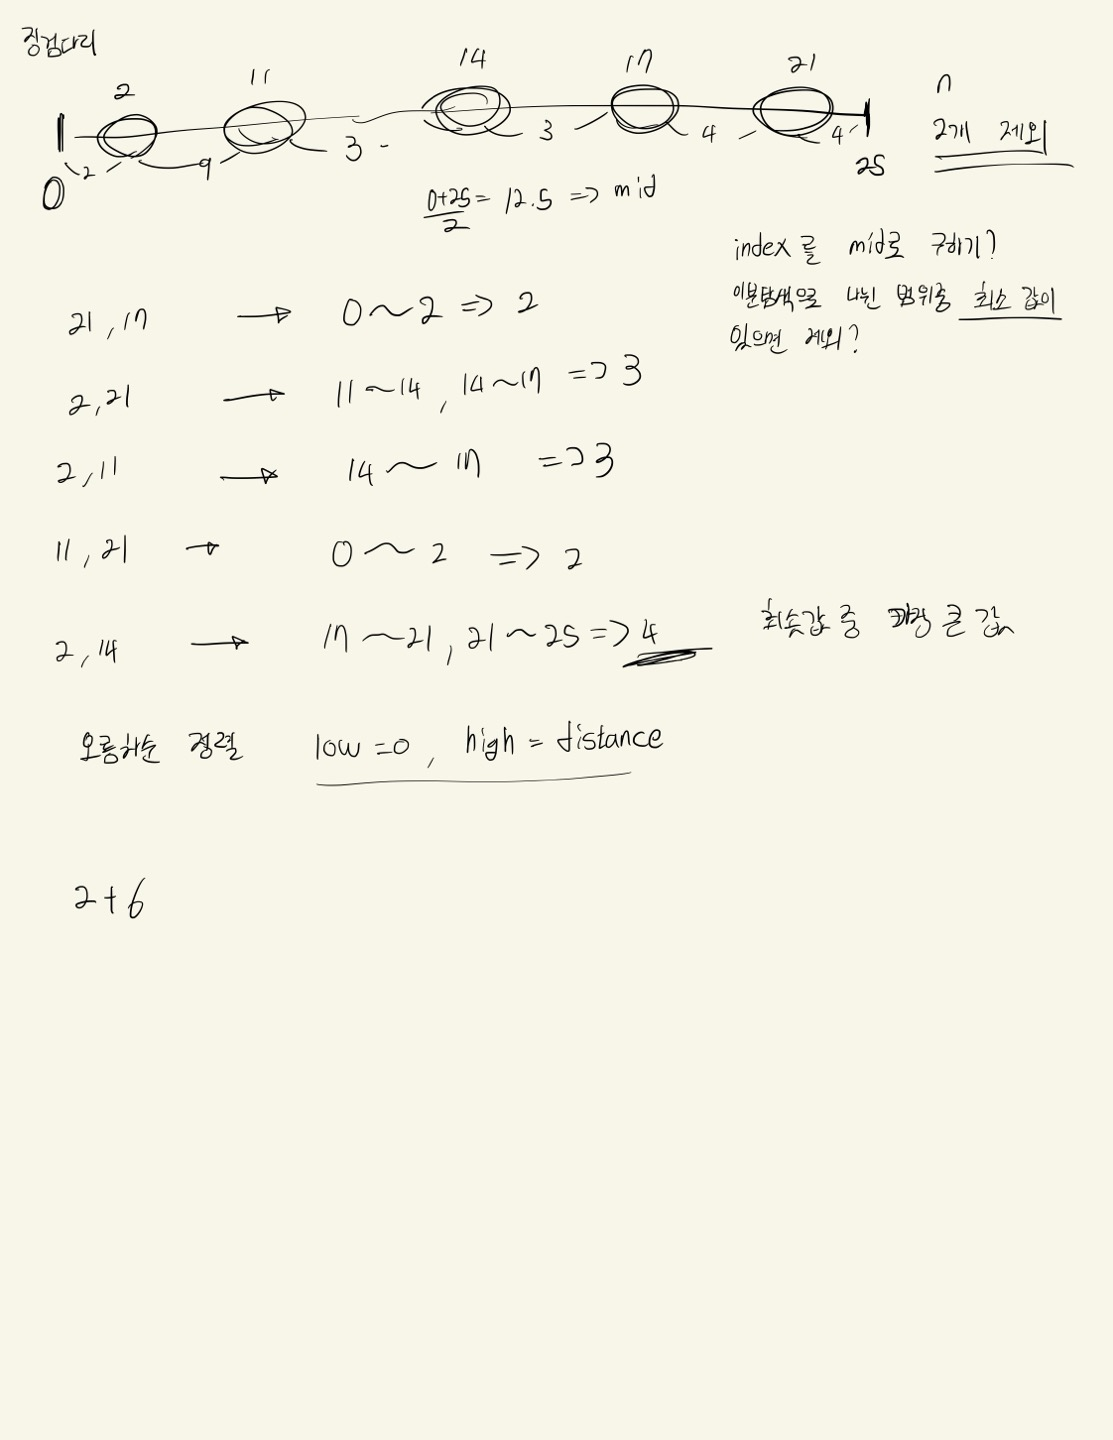 징검다리
2 11 14 17 21
n
2개 제외
2 9 3 3 4 4
0 25
0+25/2 = 12.5 => mid
index를 mid로 구하기?
이분탐색으로 나뉜 범위중 최소 값이
있으면 제외?
21, 17 → 0~2 => 2
2, 21 → 11~14, 14~17 => 3
2, 11 → 14~17 => 3
11, 21 → 0~2 => 2
2, 14 → 17~21, 21~25 => 4
최솟값 중 가장 큰 값
오름차순 정렬 low = 0, high = distance
2+6